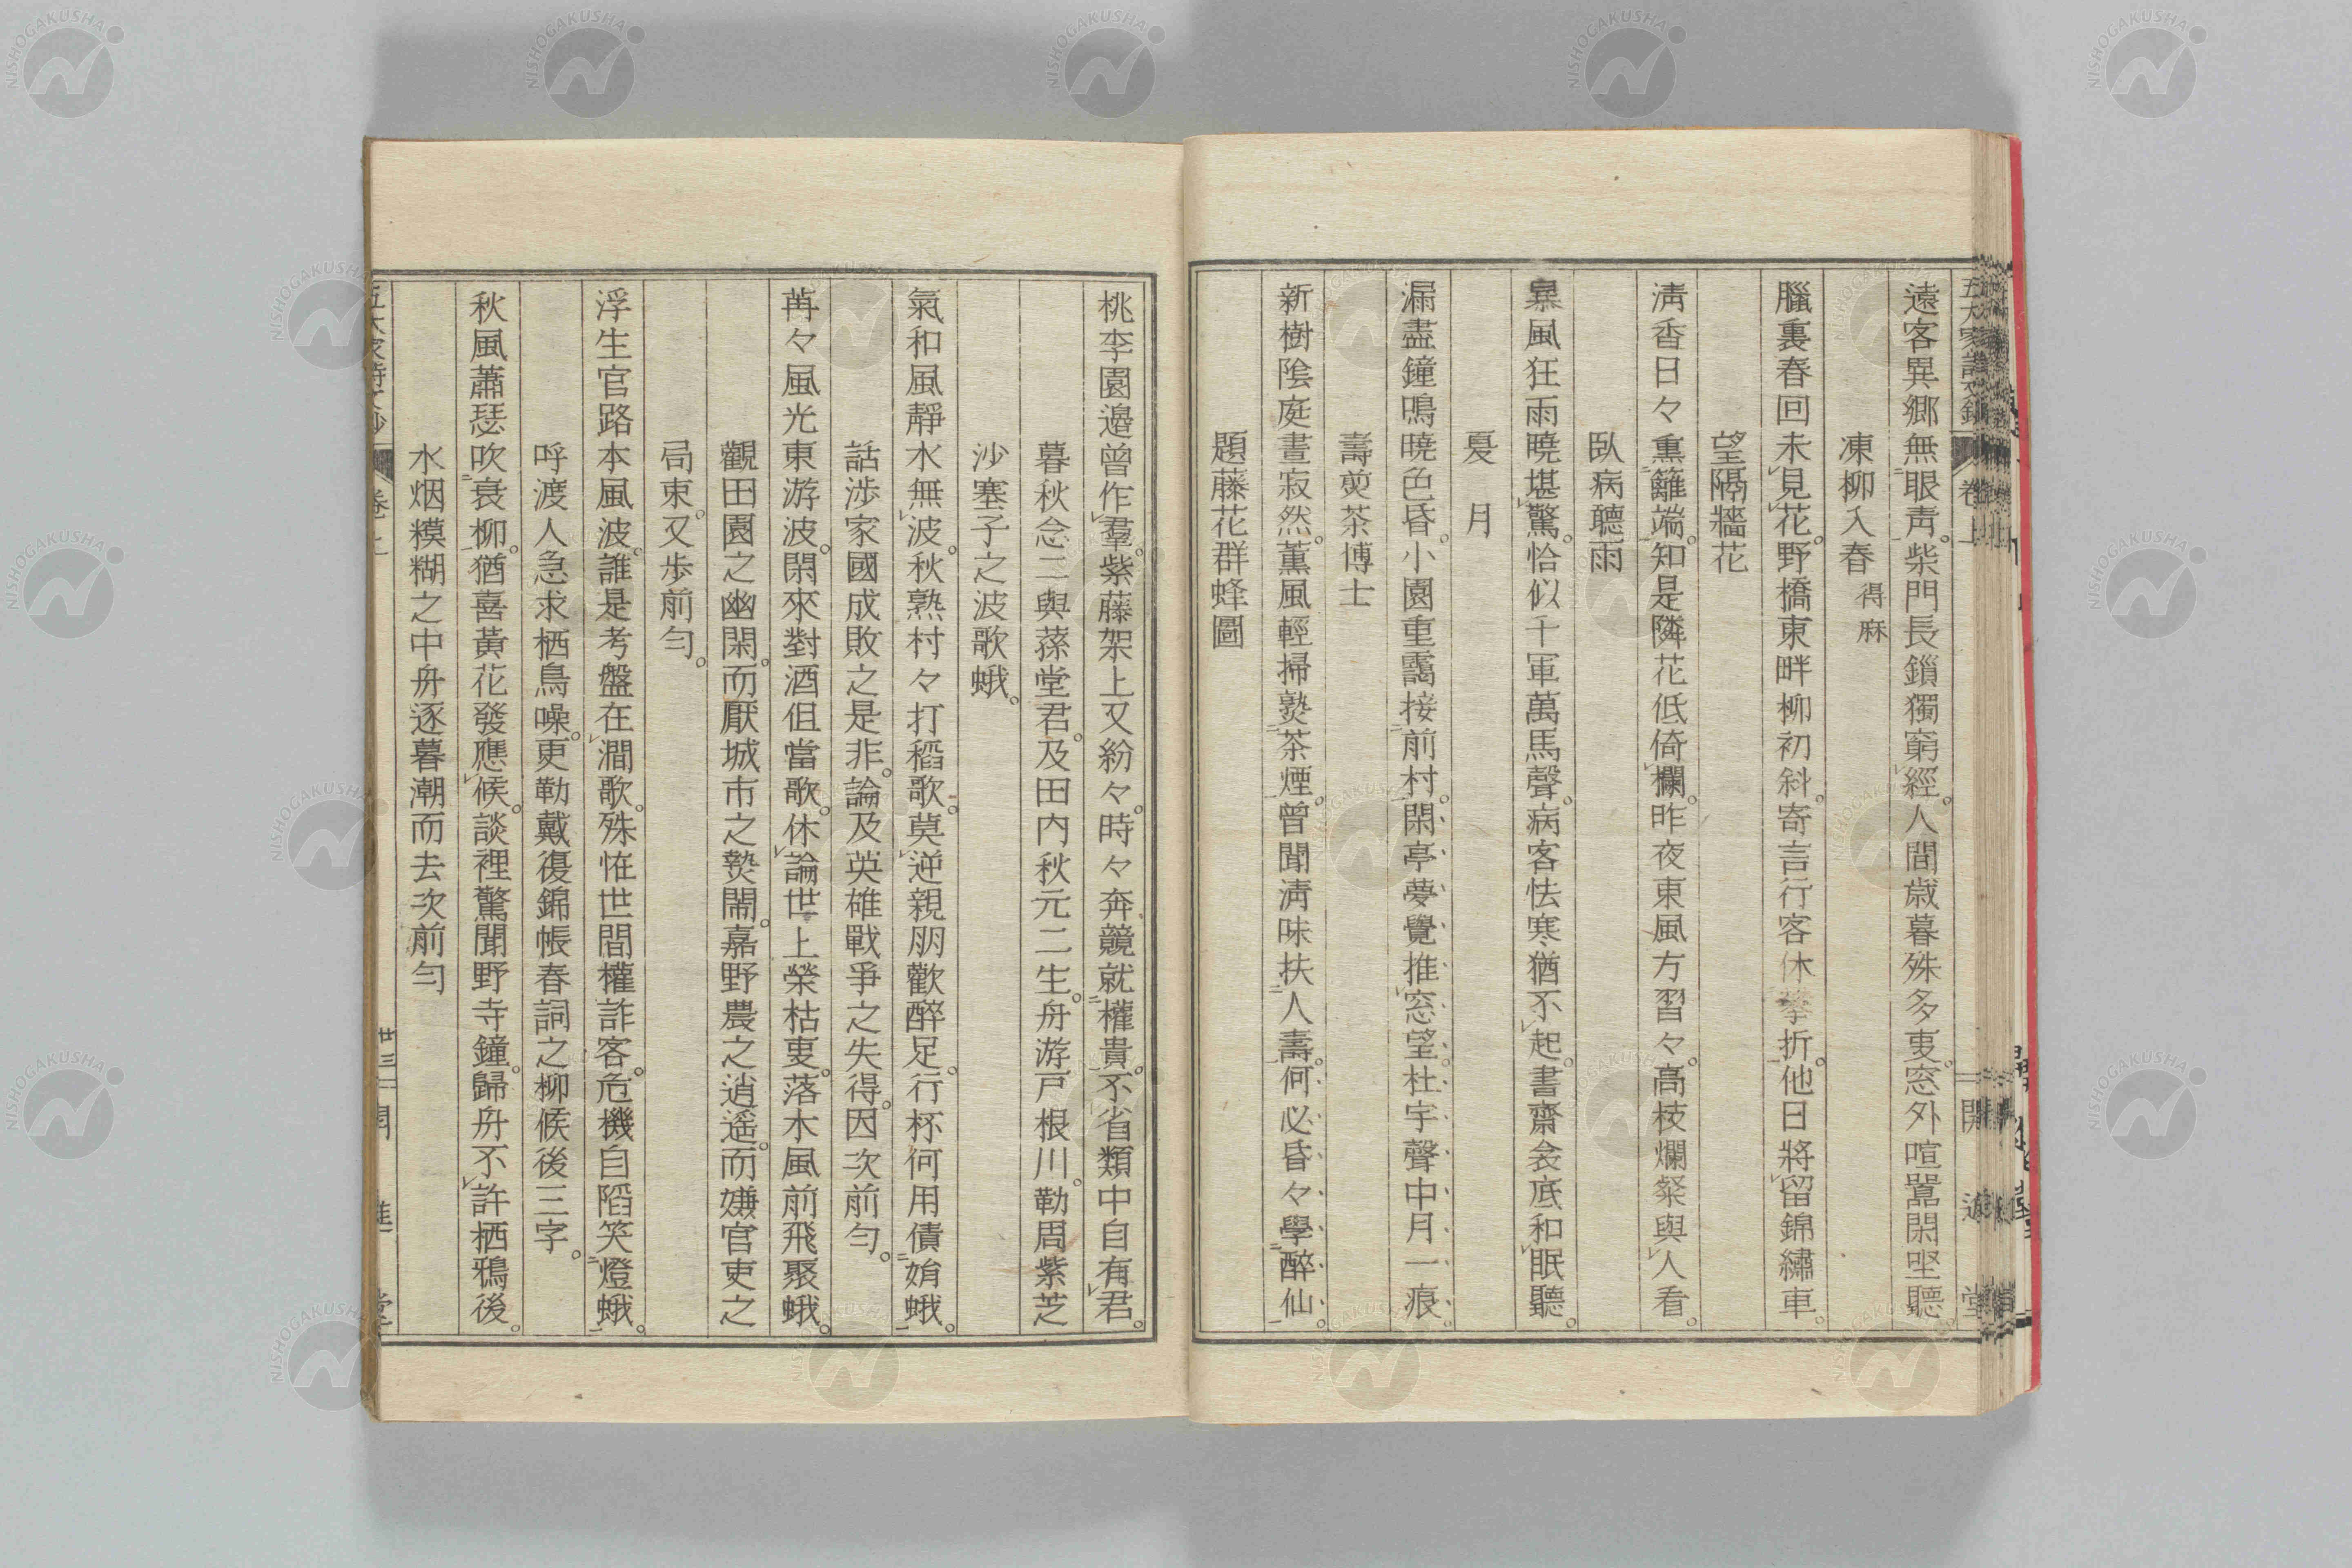 遠客異郷無眼靑。柴門長鎖獨窮經。人間歳暮殊多事。窓外喧囂閑坐聽
凍柳入春 得麻
臘裏春回未見花。野橋東畔柳初斜。寄言行客休攀折。他日將留錦繡車。
望隔牆花
淸香日々熏籬端。知是隣花低倚欄。昨夜東風方習々。高枝爛粲與人看。
臥病聽雨
暴風狂雨曉堪驚。恰似千軍萬馬聲。病客怯寒猶不起。書齋衾底和眠聽。
夏月
漏盡鐘鳴曉色昏。小園重靄接前村。閑亭夢覺推窓望。杜宇聲中月一痕。
壽煎茶博士
新樹陰庭晝寂然。薰風輕掃熟茶煙。曾聞淸味扶人壽。何必昏々學醉仙。
題藤花群蜂圖
桃李園邉曾作羣。紫藤架上又紛々。時々奔競就權貴。不省類中自有君。
暮秋念二與蓀堂君。及田内秋元二生。舟游戸根川。勒周紫芝
沙塞子之波歌蛾。
氣和風靜水無波。秋熟村々打稻歌。莫逆親朋歡醉足。行杯何用債娋蛾。
話渉家國成敗之是非。論及英雄戰爭之失得。因次前匀。
苒々風光東游波。閑來對酒伹當歌。休論世上榮枯事。落木風前飛聚蛾。
觀田園之幽閑。而厭城市之熱閙。嘉野農之逍遥。而嫌官吏之
局束。又歩前匀。
浮生官路本風波。誰是考盤在澗歌。殊恠世間權詐客。危機自陷笑燈蛾。
呼渡人急求栖鳥噪。更勒戴復錦帳春詞之柳候後三字。
秋風蕭瑟吹衰柳。猶喜黃花發應候。談裡驚聞野寺鐘。歸舟不許栖鴉後。
水烟糢糊之中舟逐暮潮而去次前匀
五大家詩文鈔
卷上
廿三
開進堂
NISHOGAKUSHA